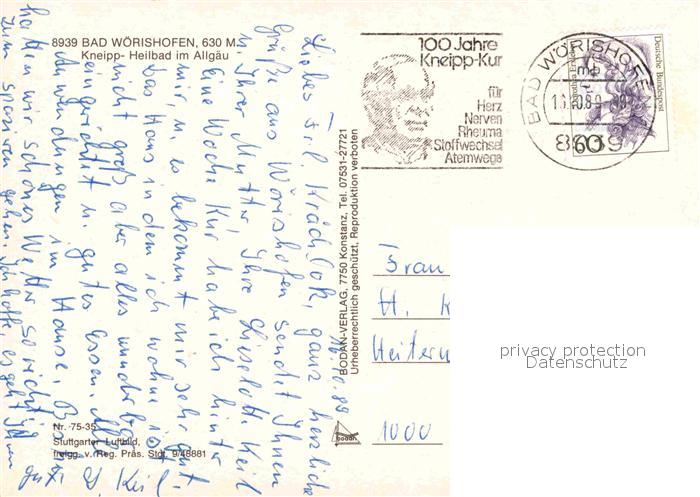 8939 BAD WÖRISHOFEN, 630 M
Kneipp- Heilbad im Allgäu
100 Jahre
Kneipp-Kur
für
Herz
Nerven
Rheuma
Stoffwechsel
Atemwege
BAD WÖRISHOFEN
mb
8939
60
Deutsche Bundespost
16.10.89
Liebes Frl. ganz herzliche
Grüße aus Wörishofen sendet Ihnen
u. Ihrer Mutter Ihre Liselotte Keil
Eine Woche Kur habe ich hinter
mir, u. es bekommt mir sehr gut.
Das Haus in dem ich wohne ist
nicht groß aber alles wunderbar
eingerichtet u. gutes Essen. Alle
Anwendungen im Hause.
hatten wir schönes Wetter so richtig
zum spazieren gehen. Ich hoffe, es geht Ihnen gut
L. Keil
BODAN-VERLAG, 7750 Konstanz, Tel. 07531-27721
Urheberrechtlich geschützt, Reproduktion verboten
Frau
H. K
Heitern
1000
privacy protection
Datenschutz
Nr. 75-35
Stuttgarter Luftbild,
freigg. v. Reg. Präs. Stgt. 9/48881
bodan